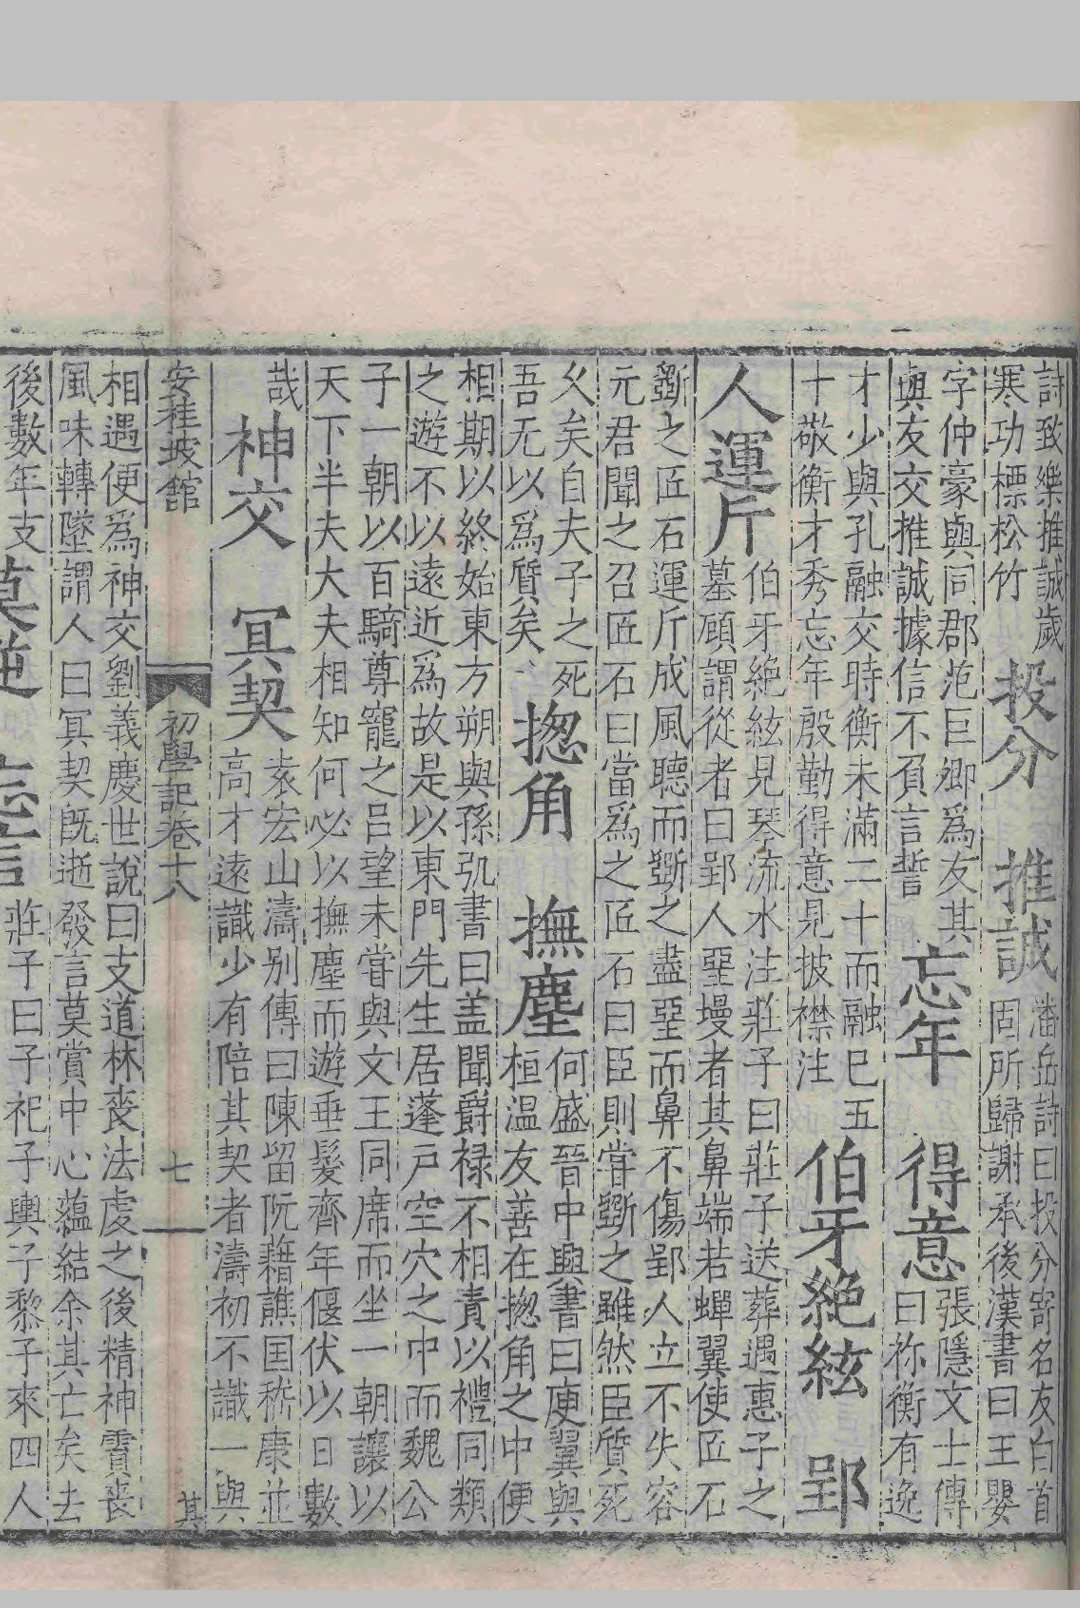 詩致樂推誠歲
寒功標松竹
投分　推誠
潘岳詩曰投分寄名友白首
固所歸謝承後漢書曰王嬰
字仲豪與同郡范巨卿爲友其
與友交推誠據信不負言誓
忘年　得意
張隱文士傳
曰祢衡有逸
才少與孔融交時衡未滿二十而融巳五
十敬衡才秀忘年殷勤得意見披襟注
伯牙絶絃　郢
人運斤
伯牙絶絃見琴流水注莊子曰莊子送葬遇惠子之
墓顧謂從者曰郢人堊墁者其鼻端若蟬翼使匠石
斵之匠石運斤成風聽而斵之盡堊而鼻不傷郢人立不失容
元君聞之召匠石曰當爲之匠石曰臣則甞斵之雖然臣質死
乆矣自夫子之死
吾无以爲質矣
揔角　撫塵
何盛晉中興書曰庾翼與
桓温友善在揔角之中便
相期以終始東方朔與孫弘書曰盖聞爵禄不相責以禮同類
之遊不以遠近爲故是以東門先生居蓬户空穴之中而魏公
子一朝以百騎尊寵之吕望未甞與文王同席而坐一朝讓以
天下半夫大夫相知何必以撫塵而遊垂髮齊年偃伏以日數
哉
神交　冥契
袁宏山濤别傳曰陳留阮藉譙国嵇康並
高才遠識少有陪其契者濤初不識一與
安桂坡館　初學記卷十八　七　其
相遇便爲神交劉義慶世說曰支道林喪法虔之後精神霣喪
風味轉墜謂人曰冥契旣逝發言莫賞中心藴結余其亡矣去
後數年支
莫逆　忘言
莊子曰子祀子輿子黎子來四人